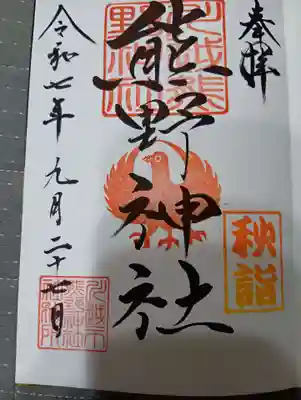 奉拝
秋詣
熊野神社
令和七年九月二十七日